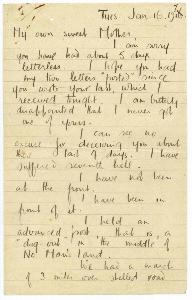 Tues. Jan 16. 1917
My own sweet Mother,
I am sorry
you have had about 5 days
letterless. I hope you had
my two letters "posted" since
you wrote your last, which I
received tonight. I am bitterly
disappointed that I never got
one of yours.
I can see no
excuse for deceiving you about
these last 4 days. I have
suffered seventh hell.
I have not been
at the front.
I have been in
front of it.
I held an
advanced post, that is, a
"dug-out" in the middle of
No Man's Land.
We had a march
of 3 miles over shelled road